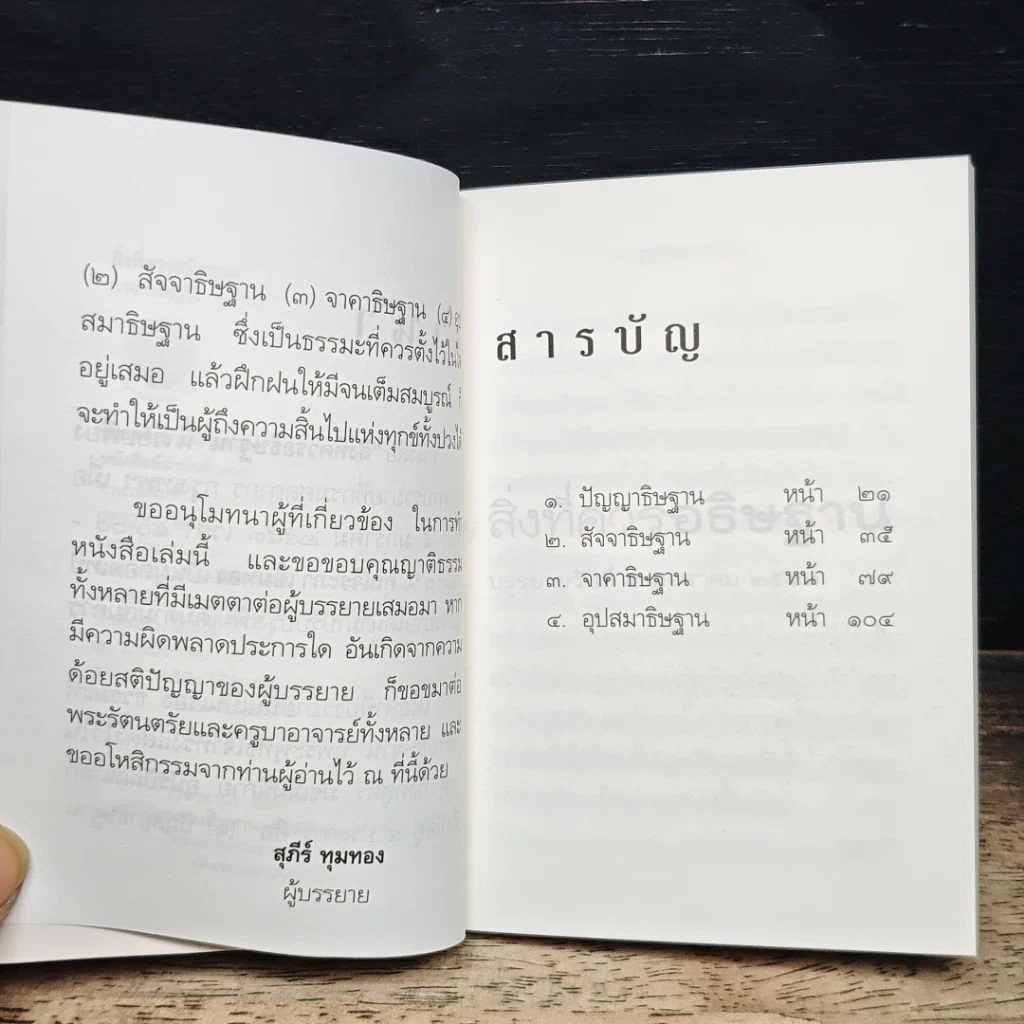 (๒) สัจจาธิษฐาน (๓) จาคาธิษฐาน (๔)
สมาธิษฐาน ซึ่งเป็นธรรมะที่ควรตั้งไว้ใน
อยู่เสมอ แล้วฝึกฝนให้มีจนเต็มสมบูรณ์ ก็
จะทำให้เป็นผู้ถึงความสิ้นไปแห่งทุกข์ทั้งปวงได้
ขออนุโมทนาผู้ที่เกี่ยวข้อง ในการทำ
หนังสือเล่มนี้ และขอขอบคุณญาติธรรม
ทั้งหลายที่มีเมตตาต่อผู้บรรยายเสมอมา หาก
มีความผิดพลาดประการใด อันเกิดจากความ
ด้อยสติปัญญาของผู้บรรยาย ก็ขอขมาต่อ
พระรัตนตรัยและครูบาอาจารย์ทั้งหลาย และ
ขออโหสิกรรมจากท่านผู้อ่านไว้ ณ ที่นี้ด้วย
สุภีร์ ทุมทอง
ผู้บรรยาย
สารบัญ
๑. ปัญญาธิษฐาน หน้า ๒๑
๒. สัจจาธิษฐาน หน้า ๓๕
๓. จาคาธิษฐาน หน้า ๗๙
๔. อุปสมาธิษฐาน หน้า ๑๐๔
สิ่งที่ควรอธิษฐาน